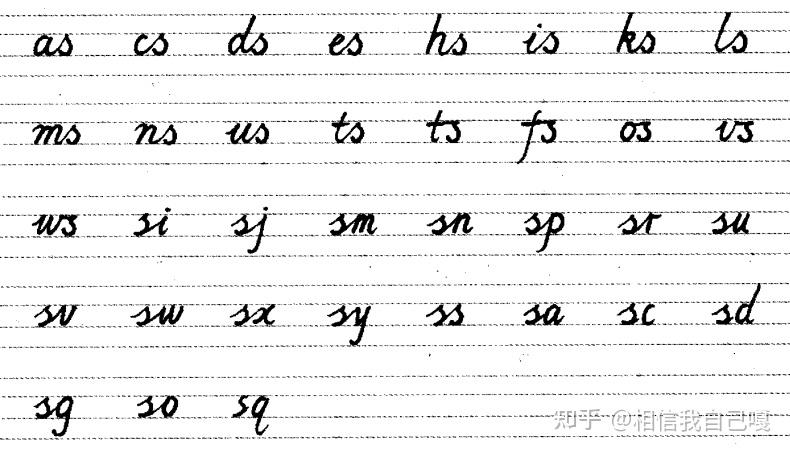 as cs ds es hs is ks ls
ms ns us ts ts fs os vs
ws si sj sm sn sp sr su
sv sw sx sy ss sa sc sd
sg so sq
知乎 @相信我自己嘎